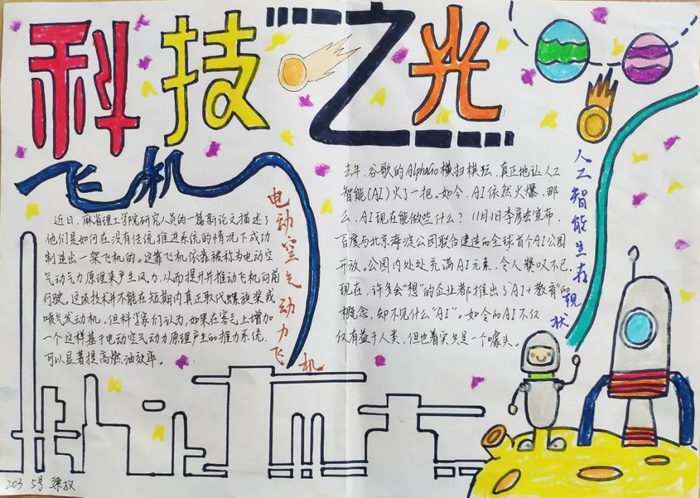 科技之光
飞机
电动空气动力飞机
近日,麻省理工学院研究人员的一篇新论文描述了
他们是如何在没有传统推进系统的情况下成功
制造出一架飞机的。这靠飞机依靠被称为电动空
气动力气原理来产生风力,从而提升并推动飞机向前
行驶,这项技术并不能在短期内真正取代螺旋桨或
喷气发动机,但科学家们认为,如果在客气上增加
一个这样基于电动空气动力原理产生的推力系统,
可以显著提高燃油效率。
人工智能生存现状
去年,谷歌的AlphaGo横扫棋坛,真正地让人工
智能(AI)火了一把。如今,AI依然火爆,那
么,AI现在能做些什么?11月1日李彦宏宣布,
百度与北京海淀公园联合建造的全球首个AI公园
开放。公园内处处充满AI元素,令人赞叹不已。
现在,许多会“想”的企业都推出了“AI+教育”的
概念,却不见什么“AI”,如今的AI不仅
仅有益于人类,但也着实只是一个噱头。
203 5号